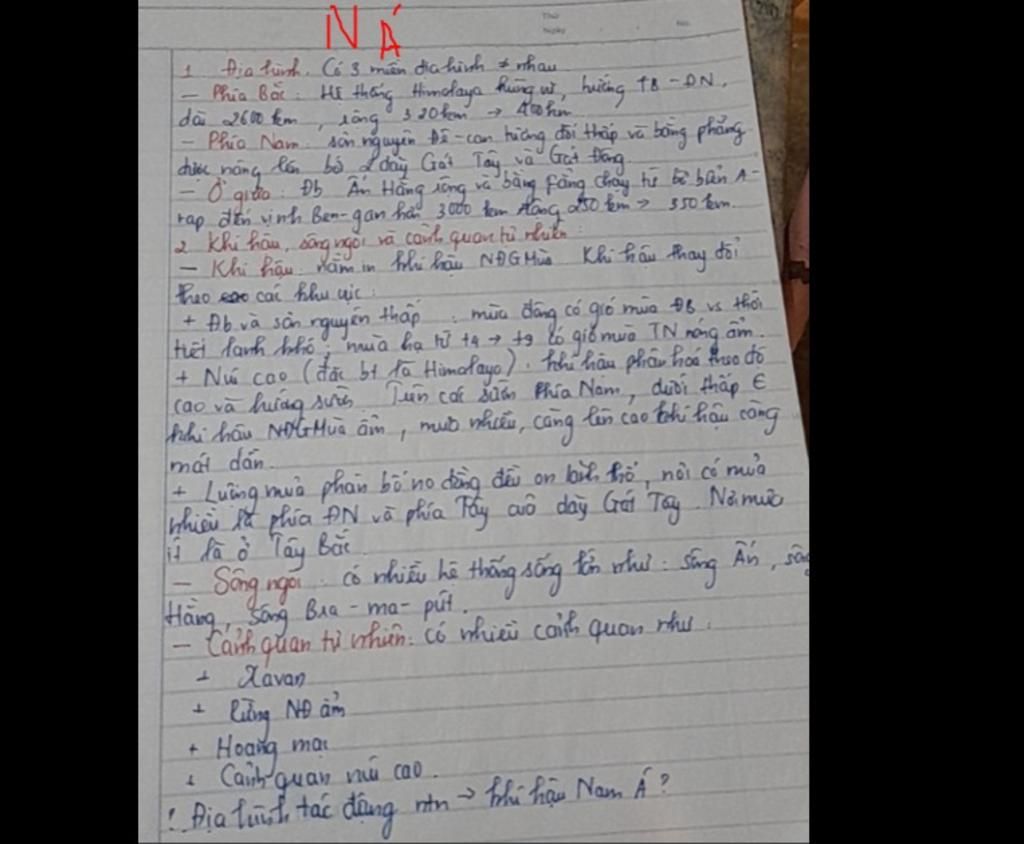 N Á
Thứ
Ngày
No.
1. Địa hình. Có 3 miền địa hình ≠ nhau
- Phía Bắc: Hệ thống Himalaya hùng vĩ, hướng TB-ĐN,
dài 2600 km, rộng 320km → 400km
- Phía Nam: sơn nguyên Đê-can tương đối thấp và bằng phẳng
được nâng lên bở 2 dãy Gát Tây và Gát Đông.
- Ở giữa: Đb Ấn Hằng rộng và bằng fẳng chạy từ bờ biển A-
rap đến vịnh Ben-gan hơn 3000 km rộng 250 km → 350 km.
2. Khí hậu, sông ngòi và cảnh quan tự nhiên:
- Khí hậu: nằm in khí hậu NĐGMùa. Khí hậu thay đổi
theo các khu vực:
+ Đb và sơn nguyên thấp: mùa đông có gió mùa ĐB vs thời
tiết lạnh khô, mùa hạ từ t4 → t9 có gió mùa TN nóng ẩm.
+ Núi cao (đặc bt là Himalaya): khí hậu phân hoá theo độ
cao và hướng sườn. Trên các sườn Phía Nam, dưới thấp ∈
khí hậu NĐGMùa ẩm, mưa nhiều, càng lên cao khí hậu càng
mát dần.
+ Lượng mưa phân bố no đồng đều on lãnh thổ, nơi có mưa
nhiều là phía ĐN và phía Tây của dãy Gát Tây. Nơi mưa
ít là ở Tây Bắc.
- Sông ngòi: có nhiều hệ thống sông lớn như: sông Ấn, sông
Hằng, sông Bra-ma-pút.
- Cảnh quan tự nhiên: có nhiều cảnh quan như:
+ Xavan
+ Rừng NĐ ẩm
+ Hoang mạc
+ Cảnh quan núi cao.
! Địa hình tác động ntn → khí hậu Nam Á?